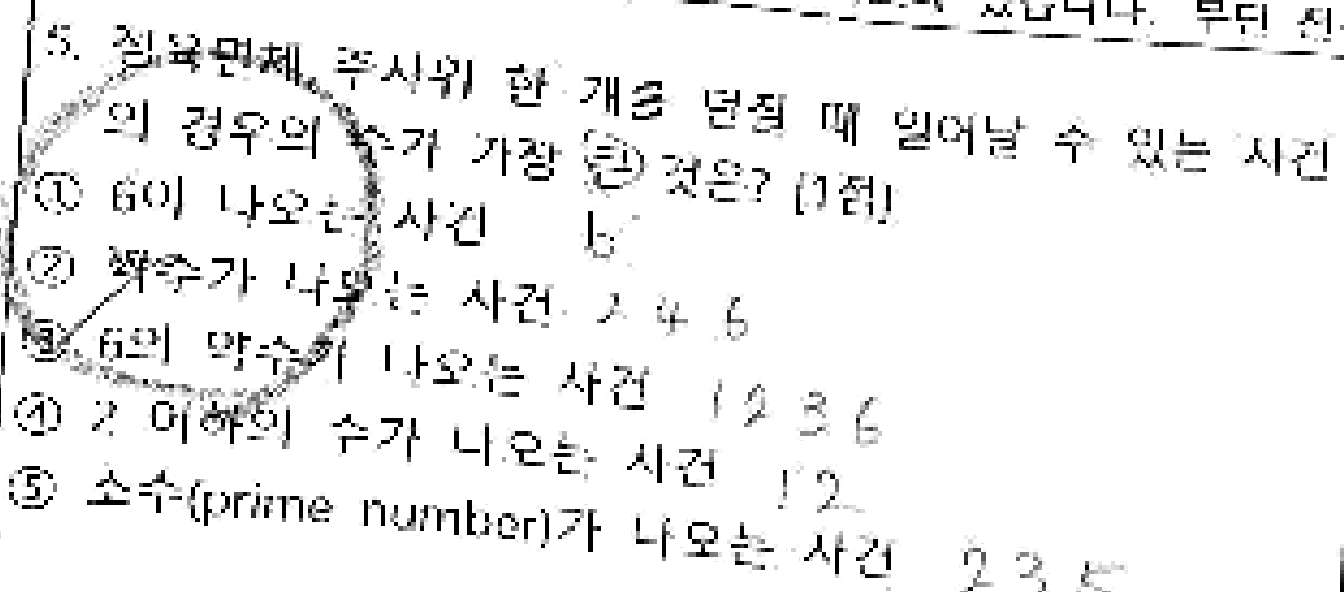 있습니다. 부단
5. 정육면체 주사위 한 개를 던질 때 일어날 수 있는 사건
의 경우의 수가 가장 큰 것은? (1점)
① 6이 나오는 사건 6
② 짝수가 나오는 사건 2 4 6
③ 6의 약수가 나오는 사건 1 2 3 6
④ 2 이하의 수가 나오는 사건 1 2
⑤ 소수(prime number)가 나오는 사건 2 3 5